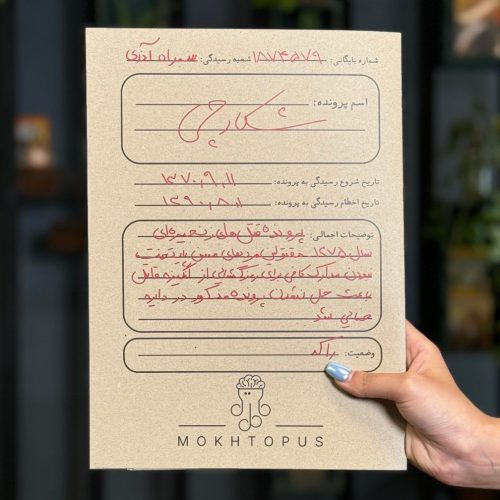 شماره بایگانی: ۱۵۷۴۵۷۹ شعبه رسیدگی: سهراه آذری
اسم پرونده:
شکارچی
تاریخ شروع رسیدگی به پرونده: ۱۳۷۰٫۹٫۱۱
تاریخ اخطام رسیدگی به پرونده: ۱۳۹۰٫۸٫۱
توضیحات اجمالی: پرونده قتل‌های زنجیره‌ای
سال ۱۳۷۵ مقتولین مردهای مسن پایتخت
نبودن مدارک کافی برای
باعث حل نشدن پرونده مذکور در دایره
جنایی شد
وضعیت: راکد
MOKHTOPUS